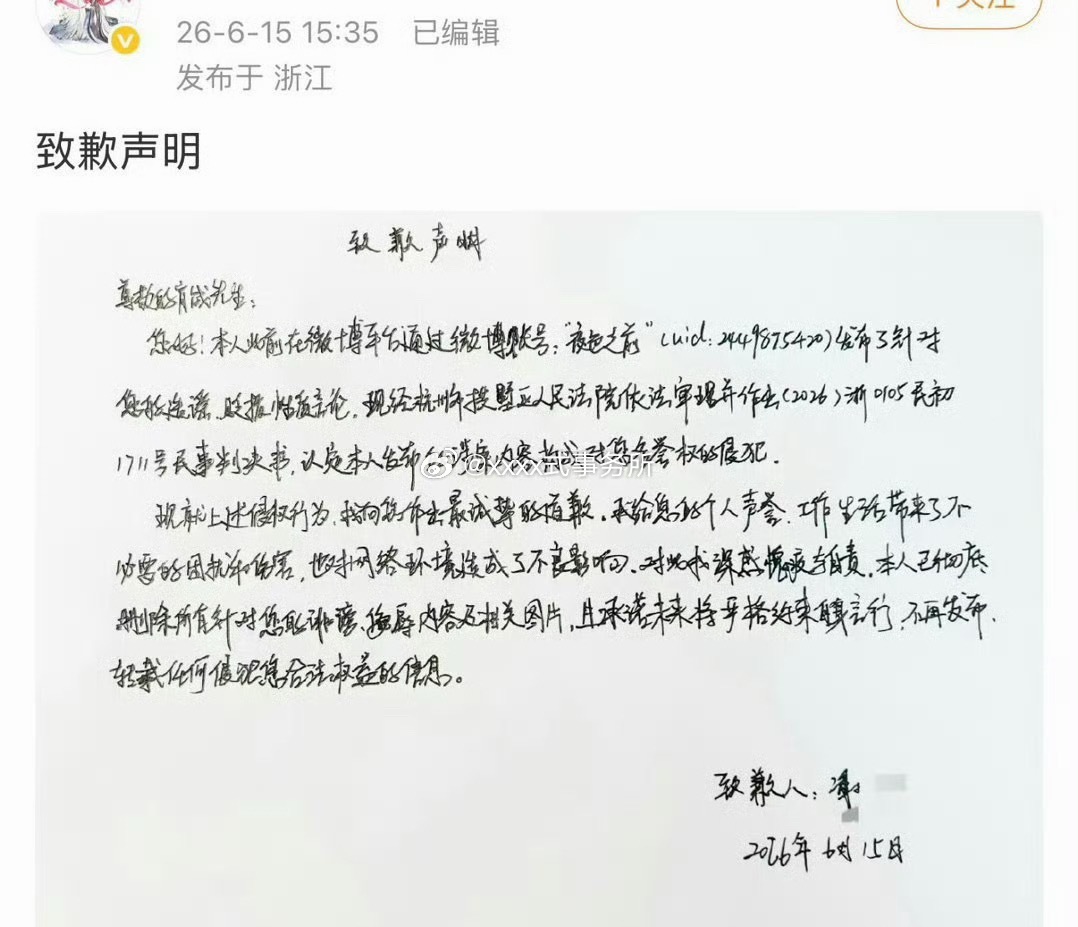 关注
26-6-15 15:35 已编辑
发布于 浙江
致歉声明
致歉声明
尊敬的肖战先生:
您好!本人此前在微博平台通过微博账号:"夜色之前"(uid:2449875420)发布了针对
您的造谣、贬损性质言论,现经杭州市拱墅区人民法院依法审理并作出(2026)浙0105民初
1711号民事判决书,认定本人发布的涉案内容构成对您名誉权的侵犯.
现就上述侵权行为,我向您作出最诚挚的道歉.我给您的个人声誉、工作生活带来了不
必要的困扰和伤害,也对网络环境造成了不良影响,对此我深感愧疚与自责.本人已彻底
删除所有针对您的诽谤、侮辱内容及相关图片,且承诺未来将严格约束言行,不再发布、
转载任何侵犯您合法权益的信息。
@xxxx式事务所
致歉人:
2026年6月15日